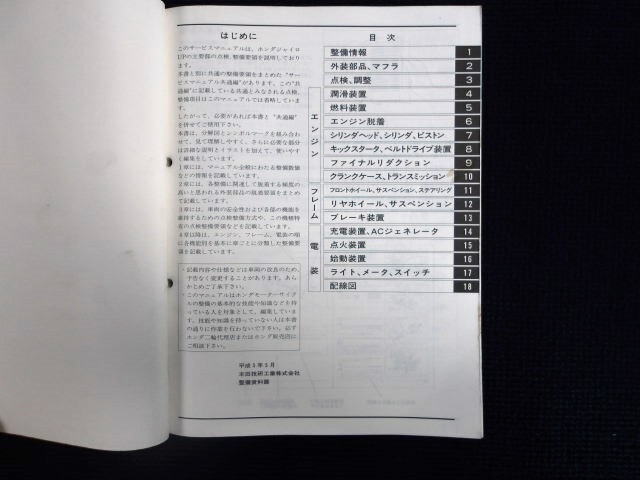 はじめに
このサービスマニュアルは、ホンダジャイロ
UPの主要部の点検、整備要領を説明しており
ます。
本書と別に共通の整備要領をまとめた"サー
ビスマニュアル共通編"があります。この"共
通編"に記載している共通とみなされる点検、
整備項目はこのマニュアルでは省略していま
す。
したがって、必要があれば本書と"共通編"
を併せてご使用下さい。
本書は、分解図とシンボルマークを組み合わ
せて、見て理解しやすく、さらに必要な部分
は詳細な説明とイラストを加えて、使いやす
く編集をしています。
1章には、マニュアル全般にわたる整備数値
などの情報を記載しています。
2章には、各整備に関連して脱着する頻度の
高いと思われる外装部品の脱着整備をまとめ
て記載しています。
3章には、車両の安全性および各部の機能を
維持するための点検整備方式や、この機種特
有の点検整備要領などを記載しています。
4章以降は、エンジン、フレーム、電装の順
に各機能別を基本に章ごとに分類した整備要
領を記載しています。
・記載内容や仕様などは車両の改良のため、
予告なく変更することがあります。あら
かじめご了承下さい。
・このマニュアルはホンダモーターサイクル
の整備の基本的な技能や知識などを持
っている人を対象として、編集していま
す。技能や知識を持っていない人は本書
の通りに作業を行わないで下さい。必ず
ホンダ二輪代理店またはホンダ販売店に
ご相談下さい。
平成3年3月
本田技研工業株式会社
整備資料課
目 次
整備情報 1
外装部品、マフラ 2
点検、調整 3
エンジン
潤滑装置 4
燃料装置 5
エンジン脱着 6
シリンダヘッド、シリンダ、ピストン 7
キックスタータ、ベルトドライブ装置 8
ファイナルリダクション 9
クランクケース、トランスミッション 10
フレーム
フロントホイール、サスペンション、ステアリング 11
リヤホイール、サスペンション 12
ブレーキ装置 13
電装
充電装置、ACジェネレータ 14
点火装置 15
始動装置 16
ライト、メータ、スイッチ 17
配線図 18